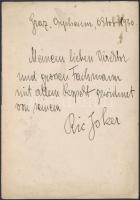 Graz, Orpheum, Oktob. 1920
Meinem lieben Direktor
und grossen Fachmann
mit allem Respekt gewidmet
von seinem
Ric Joker